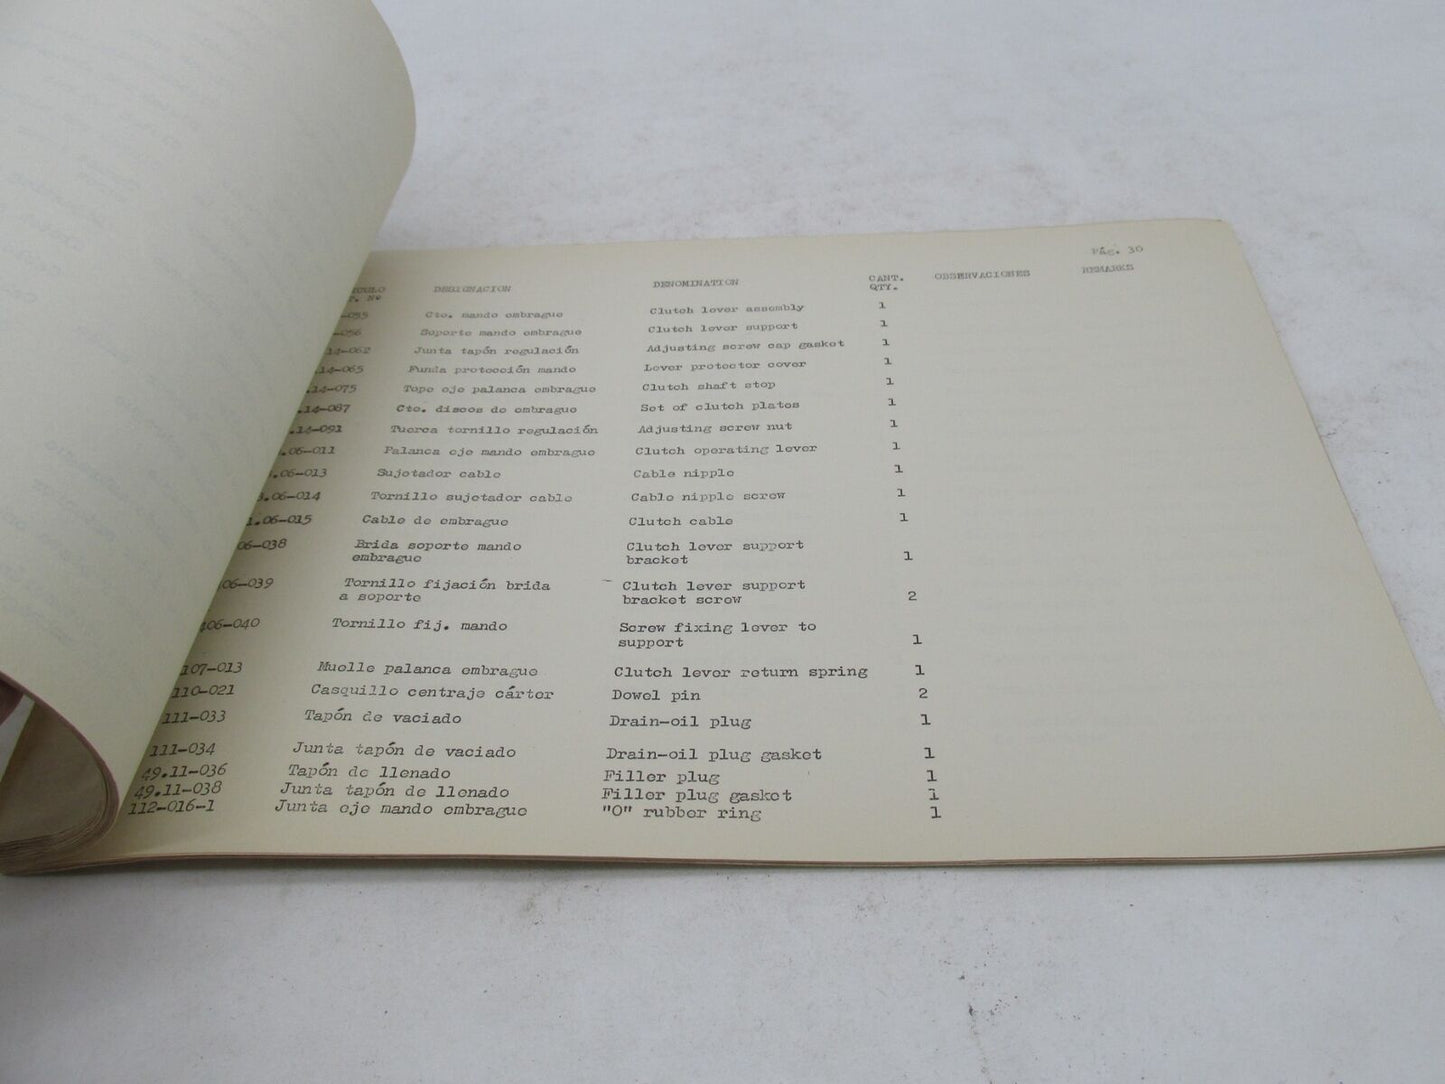 PÁG. 30
DESIGNACION DENOMINATION CANT. OBSERVACIONES REMARKS
Nº QTY.
-055 Cto. mando embrague Clutch lever assembly 1
-056 Soporte mando embrague Clutch lever support 1
14-062 Junta tapón regulación Adjusting screw cap gasket 1
.14-065 Funda protección mando Lever protector cover 1
.14-075 Tope eje palanca embrague Clutch shaft stop 1
.14-087 Cto. discos de embrague Set of clutch plates 1
.14-091 Tuerca tornillo regulación Adjusting screw nut 1
.06-011 Palanca eje mando embrague Clutch operating lever 1
.06-013 Sujetador cable Cable nipple 1
.06-014 Tornillo sujetador cable Cable nipple screw 1
1.06-015 Cable de embrague Clutch cable 1
06-038 Brida soporte mando Clutch lever support
embrague bracket 1
06-039 Tornillo fijación brida Clutch lever support
a soporte bracket screw 2
06-040 Tornillo fij. mando Screw fixing lever to
support 1
107-013 Muelle palanca embrague Clutch lever return spring 1
110-021 Casquillo centraje cárter Dowel pin 2
111-033 Tapón de vaciado Drain-oil plug 1
111-034 Junta tapón de vaciado Drain-oil plug gasket 1
49.11-036 Tapón de llenado Filler plug 1
49.11-038 Junta tapón de llenado Filler plug gasket 1
112-016-1 Junta eje mando embrague "O" rubber ring 1